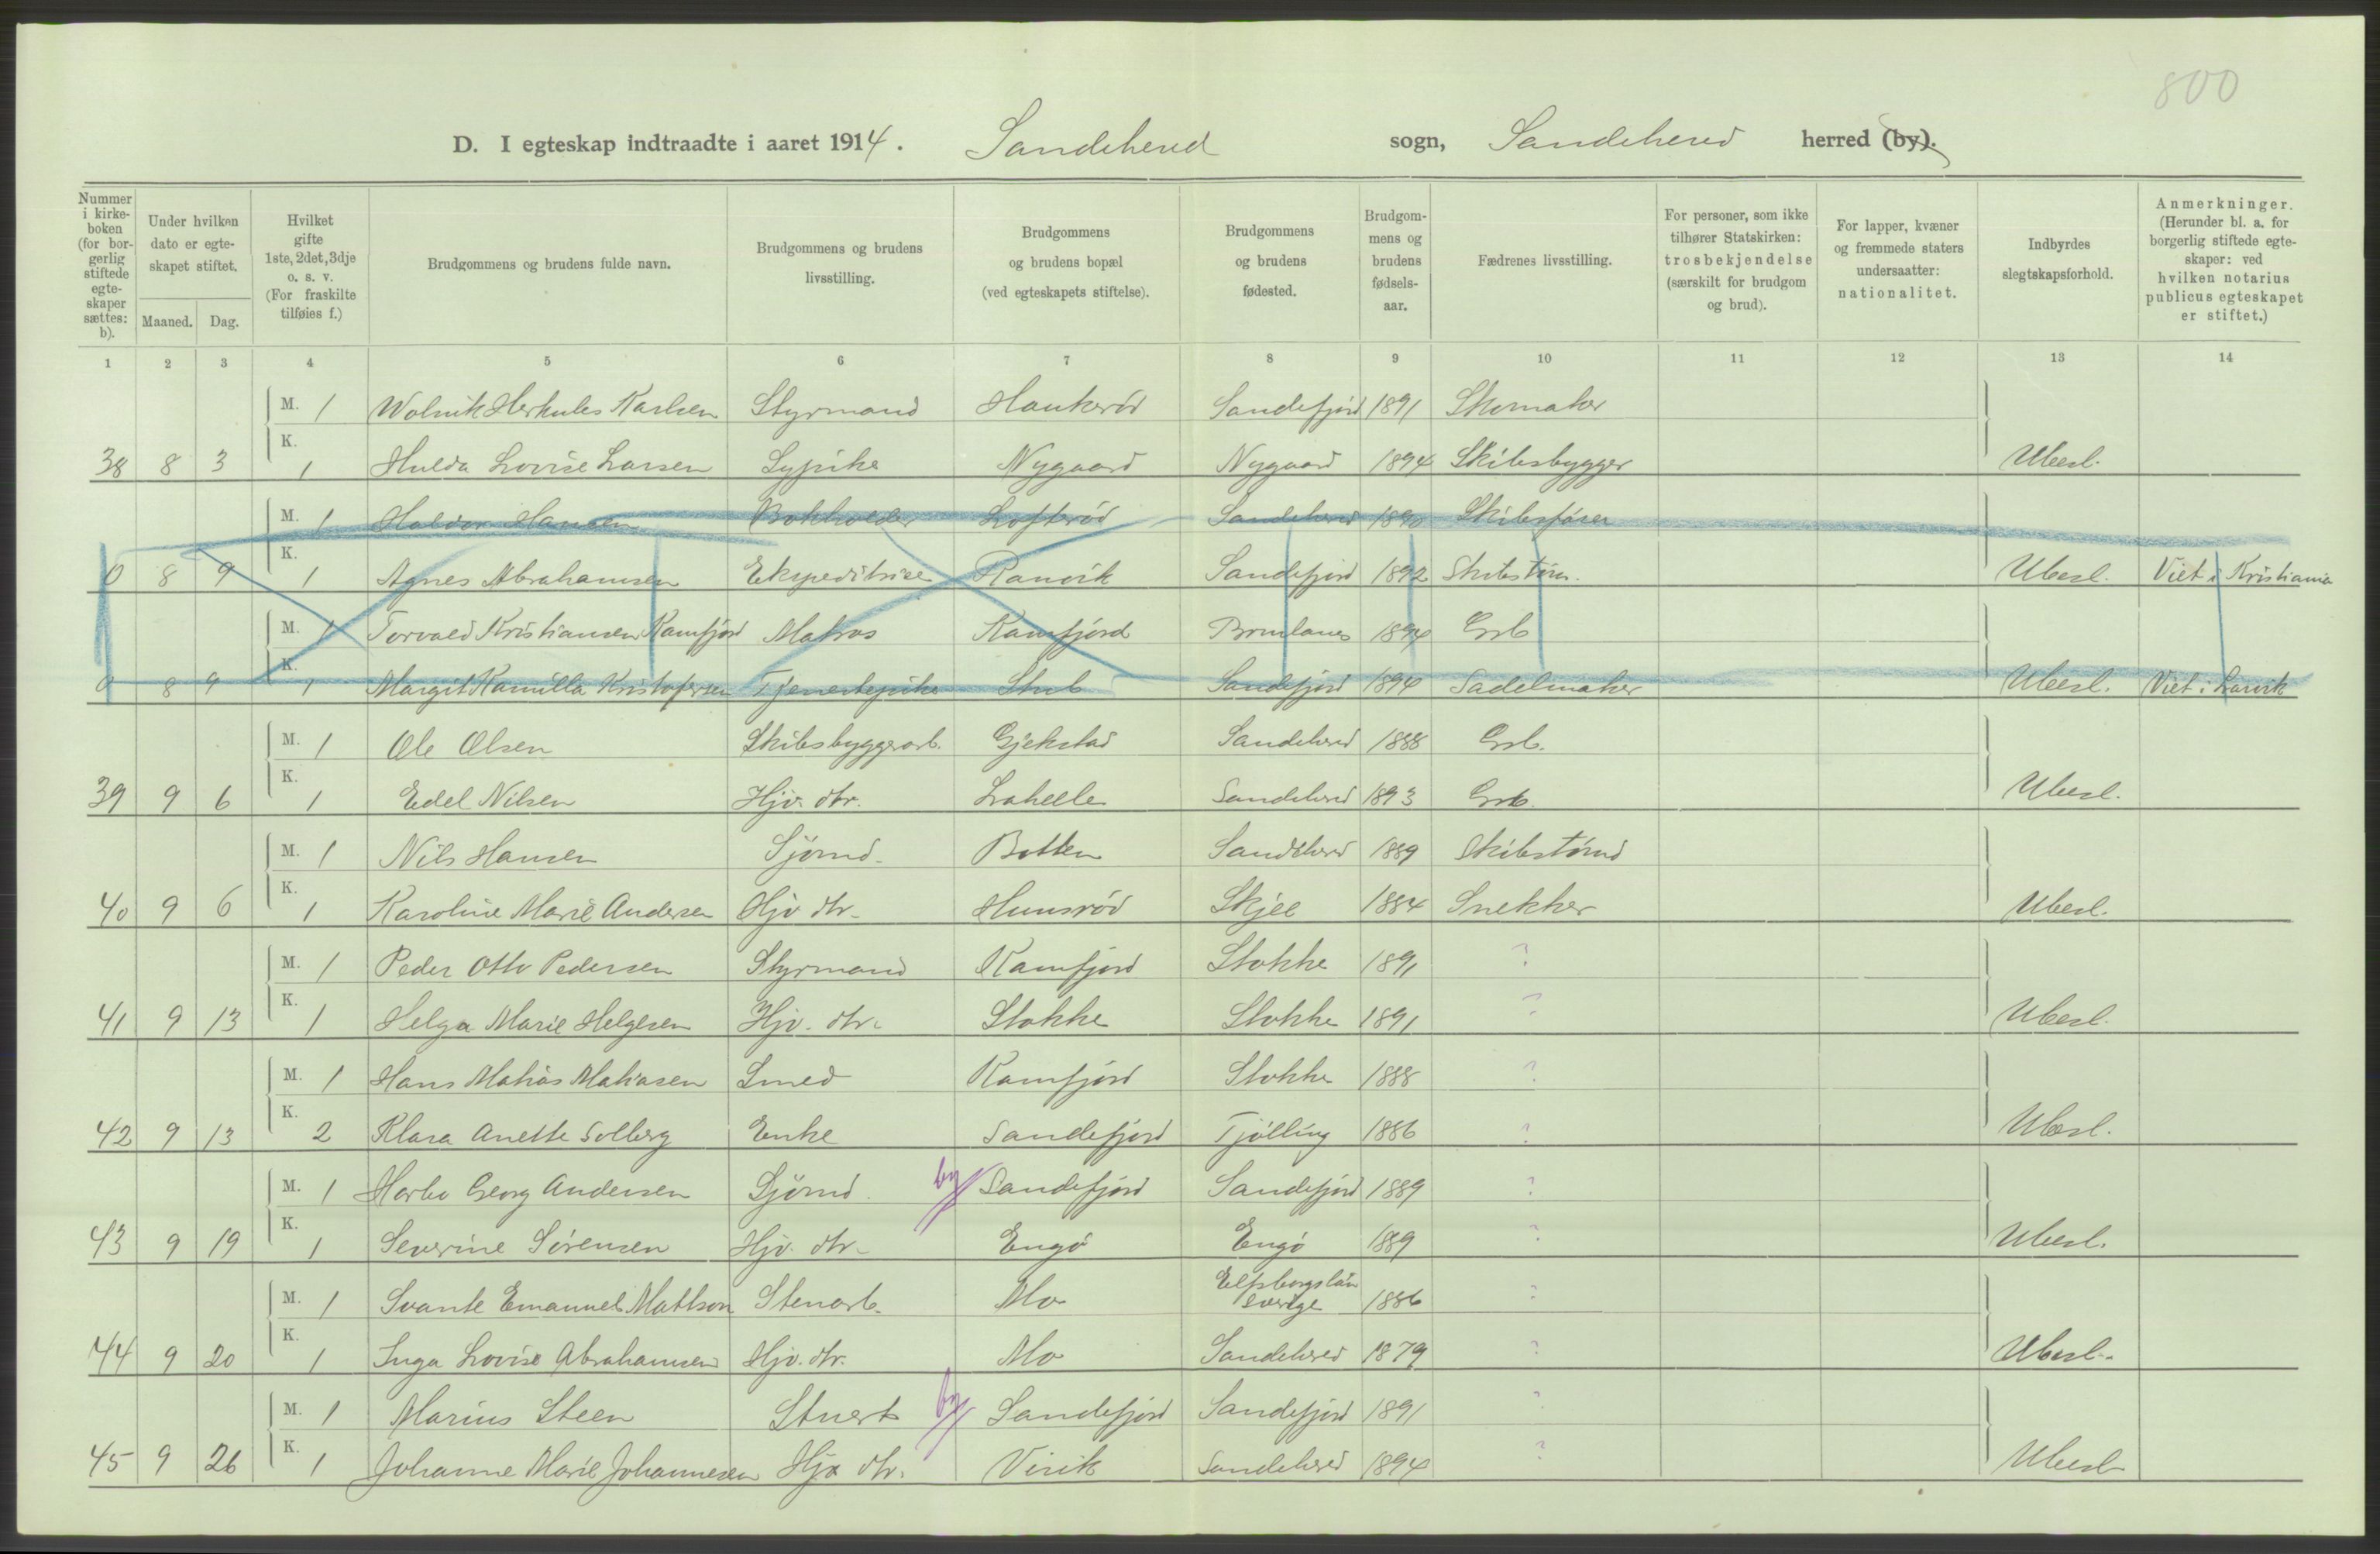 800
D. I egteskap indtraadte i aaret 1914. Sandeherred sogn, Sandeherred herred (by).
Nummer i kirkeboken (for borgerlig stiftede egteskaper sættes: b).
Under hvilken dato er egteskapet stiftet.
Maaned. Dag.
Hvilket gifte 1ste, 2det, 3dje o. s. v. (For fraskilte tilføies f.)
Brudgommens og brudens fulde navn.
Brudgommens og brudens livsstilling.
Brudgommens og brudens bopæl (ved egteskapets stiftelse).
Brudgommens og brudens fødested.
Brudgommens og brudens fødselsaar.
Fædrenes livsstilling.
For personer, som ikke tilhører Statskirken: trosbekjendelse (særskilt for brudgom og brud).
For lapper, kvæner og fremmede staters undersaatter: nationalitet.
Indbyrdes slegtskapsforhold.
Anmerkninger. (Herunder bl. a. for borgerlig stiftede egteskaper: ved hvilken notarius publicus egteskapet er stiftet.)
1 2 3 4 5 6 7 8 9 10 11 12 13 14
M. 1 Wolmik Herkules Karlsen Styrmand Haukerød Sandefjord 1891 Skomaker
38 8 3 K. 1 Hulda Lovise Larsen Sypike Nygaard Nygaard 1894 Skibsbygger Ubesl.
M. 1 Halvor Hansen Bokholder Lofterød Sandeherred 1890 Skibsfører
0 8 9 K. 1 Agnes Abrahamsen Ekspeditrise Ranvik Sandefjord 1892 Skibstøm. Ubesl. Viet i Kristiania
M. 1 Torvald Kristiansen Kamfjord Matros Kamfjord Brunlanes 1894 Grb
0 8 9 K. 1 Margit Kamilla Kristofersen Tjenestepike Stub Sandefjord 1894 Sadelmaker Ubesl. Viet i Larvik
M. 1 Ole Olsen Skibsbyggerarb. Gjekstad Sandeherred 1888 Grb.
39 9 6 K. 1 Edel Nilsen Hjv. dtr. Lahelle Sandeherred 1893 Grb. Ubesl.
M. 1 Nils Hansen Sjömd. Botten Sandeherred 1889 Skibstömd
40 9 6 K. 1 Karoline Marie Andersen Hjv dtr. Hunsrød Skjee 1884 Snekker Ubesl.
M. 1 Peder Otto Pedersen Styrmand Kamfjord Stokke 1891 ?
41 9 13 K. 1 Helga Marie Helgesen Hjv. dtr. Stokke Stokke 1891 ? Ubesl.
M. 1 Hans Matias Matiasen Smed Kamfjord Stokke 1888 ?
42 9 13 K. 2 Klara Anette Solberg Enke Sandefjord Tjølling 1886 ? Ubesl.
M. 1 Georg Andersen Sjömd. by Sandefjord Sandefjord 1889 ?
43 9 19 K. 1 Severine Sörensen Hjv. dtr. Engö Engö 1889 ? Ubesl.
M. 1 Svante Emanuel Mattson Stenarb. Mo Elfsborgslän Sverige 1886 ?
44 9 20 K. 1 Inga Lovise Abrahamsen Hjv. dtr. Mo Sandeherred 1879 ? Ubesl.
M. 1 Marius Steen Stuert by Sandefjord Sandefjord 1891 ?
45 9 26 K. 1 Johanne Marie Johannesen Hjv dtr. Virik Sandeherred 1894 ? Ubesl.